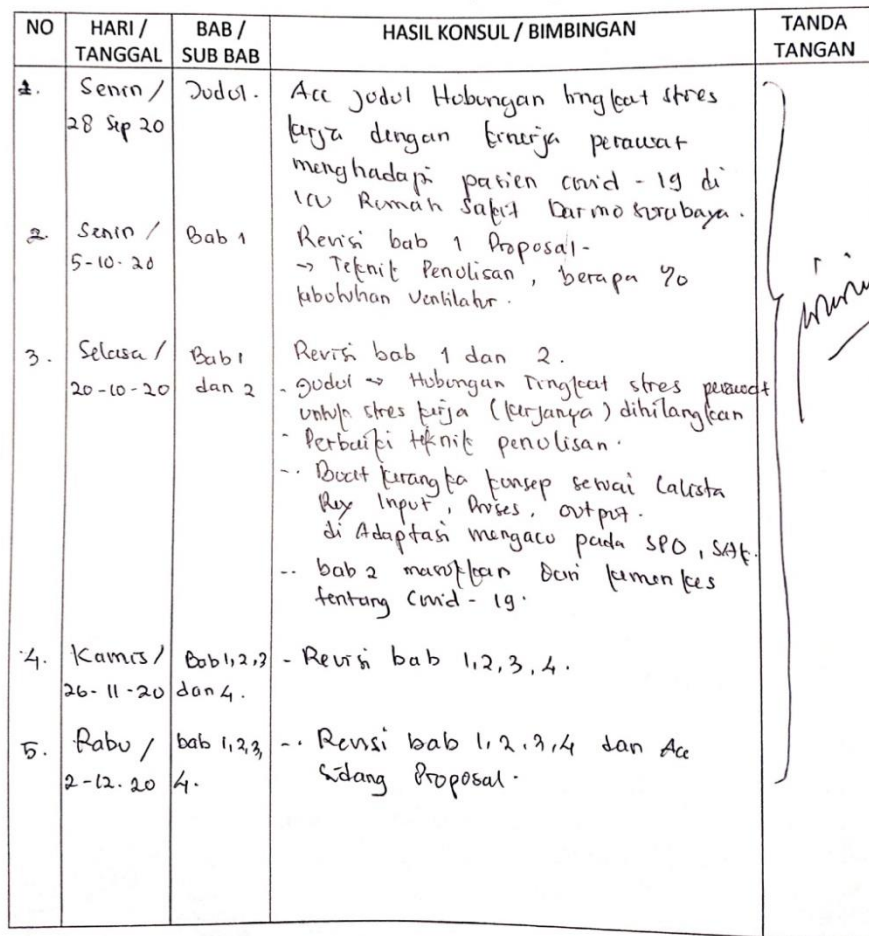 NO HARI / TANGGAL BAB / SUB BAB HASIL KONSUL / BIMBINGAN TANDA TANGAN
1. Senin / Judul. Acc judul Hubungan tingkat stres
28 Sep 20 kerja dengan kinerja perawat
menghadapi pasien covid - 19 di
ICU Rumah Sakit Darmo Surabaya.
2. Senin / Bab 1 Revisi bab 1 Proposal-
5-10-20 -> Teknik Penulisan, berapa %
kebutuhan Ventilator.
3. Selasa / Bab 1 Revisi bab 1 dan 2.
20-10-20 dan 2 - Judul -> Hubungan Tingkat stres perawat
untuk stres kerja (kerjanya) dihilangkan
- Perbaiki teknik penulisan.
- Buat kerangka konsep sesuai Calista
Roy Input, Proses, output.
di Adaptasi mengacu pada SPO, SAK.
- bab 2 masukkan Dari kemenkes
tentang Covid - 19.
4. Kamis / Bab 1,2,3 - Revisi bab 1,2,3,4.
26-11-20 dan 4.
5. Rabu / bab 1,2,3, - Revisi bab 1,2,3,4 dan Acc
2-12-20 4. Sidang Proposal.